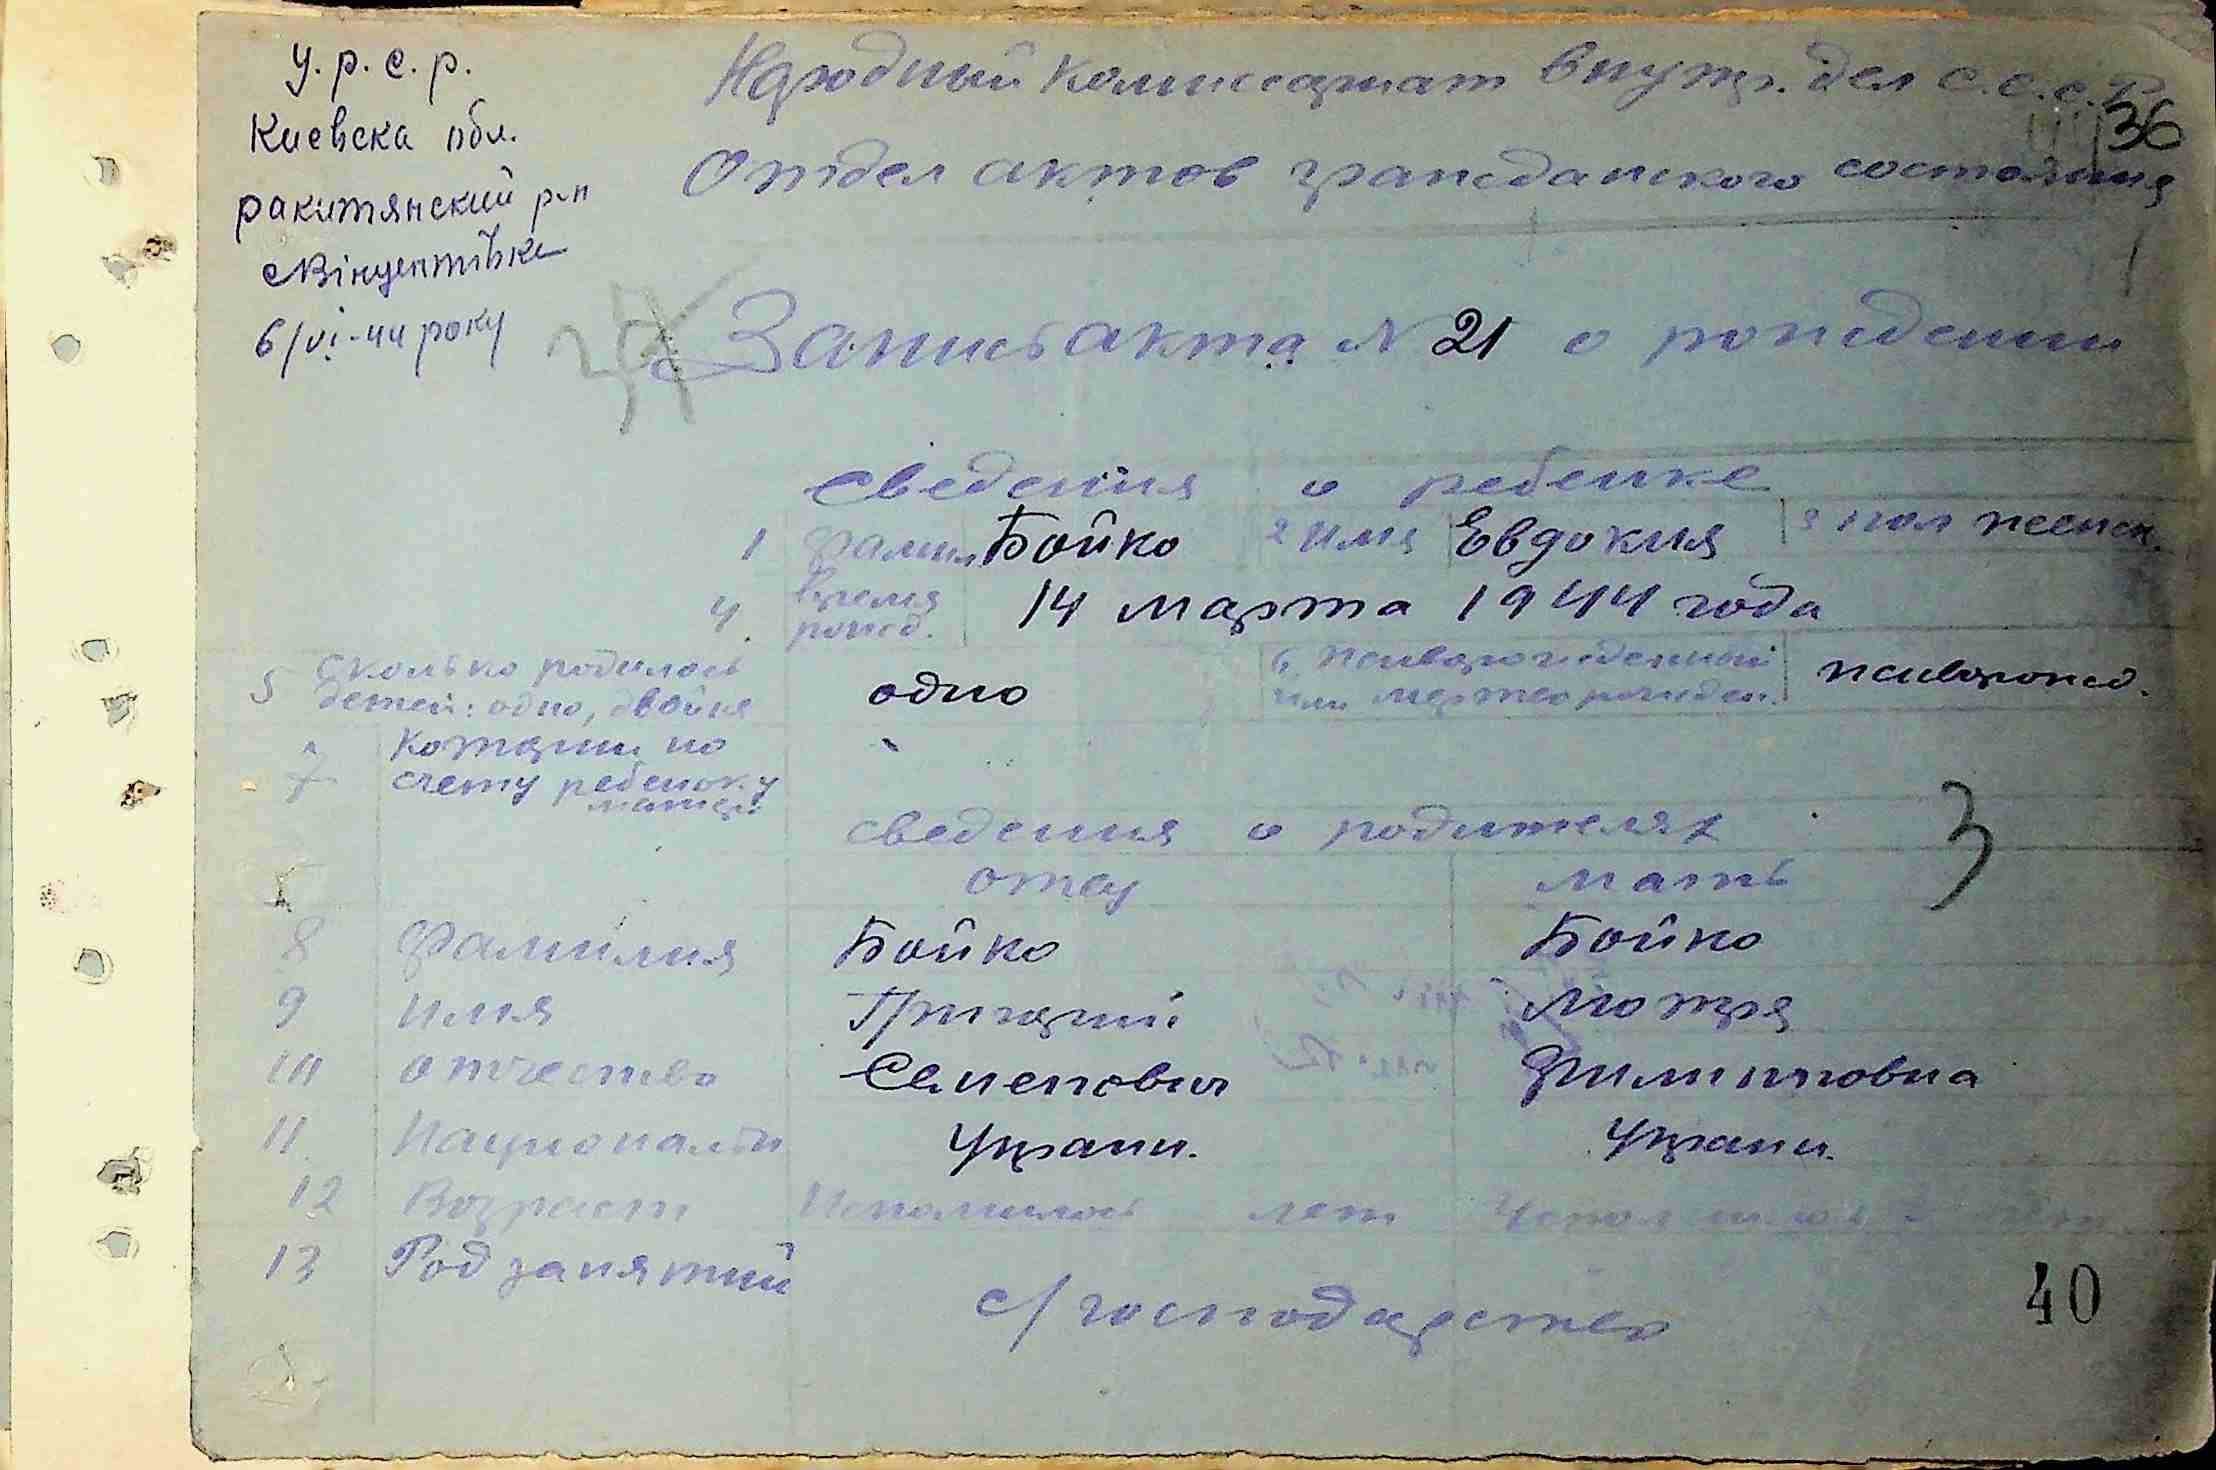 У.р.с.р.
Киевска обл.
ракитянский р-н
с Вінцентівка
6/VI-44 року
Народный Комиссариат внутр. дел С.С.С.Р.
36
Отдел актов гражданского состояния
Запись акта № 21 о рождении
Сведения о ребенке
1 Фамил. Бойко 2 Имя Евдокия 3 пол женск.
4. Время рожд. 14 марта 1944 года
5 Сколько родилось детей: одно, двойня одно 6. Живорожденный или мертворожден. живорожд.
7 Который по счету ребенок у матери
Сведения о родителях
3
отец мать
8 Фамилия Бойко Бойко
9 Имя Григорий Мотря
10 Отчество Семенович Филиповна
11 Национальн Украин. Украин.
12 Возраст Исполнилось лет Исполнилось лет
13 Род занятий
с/господарство
40